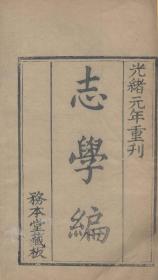 光緒元年重刊
志學編
務本堂藏板